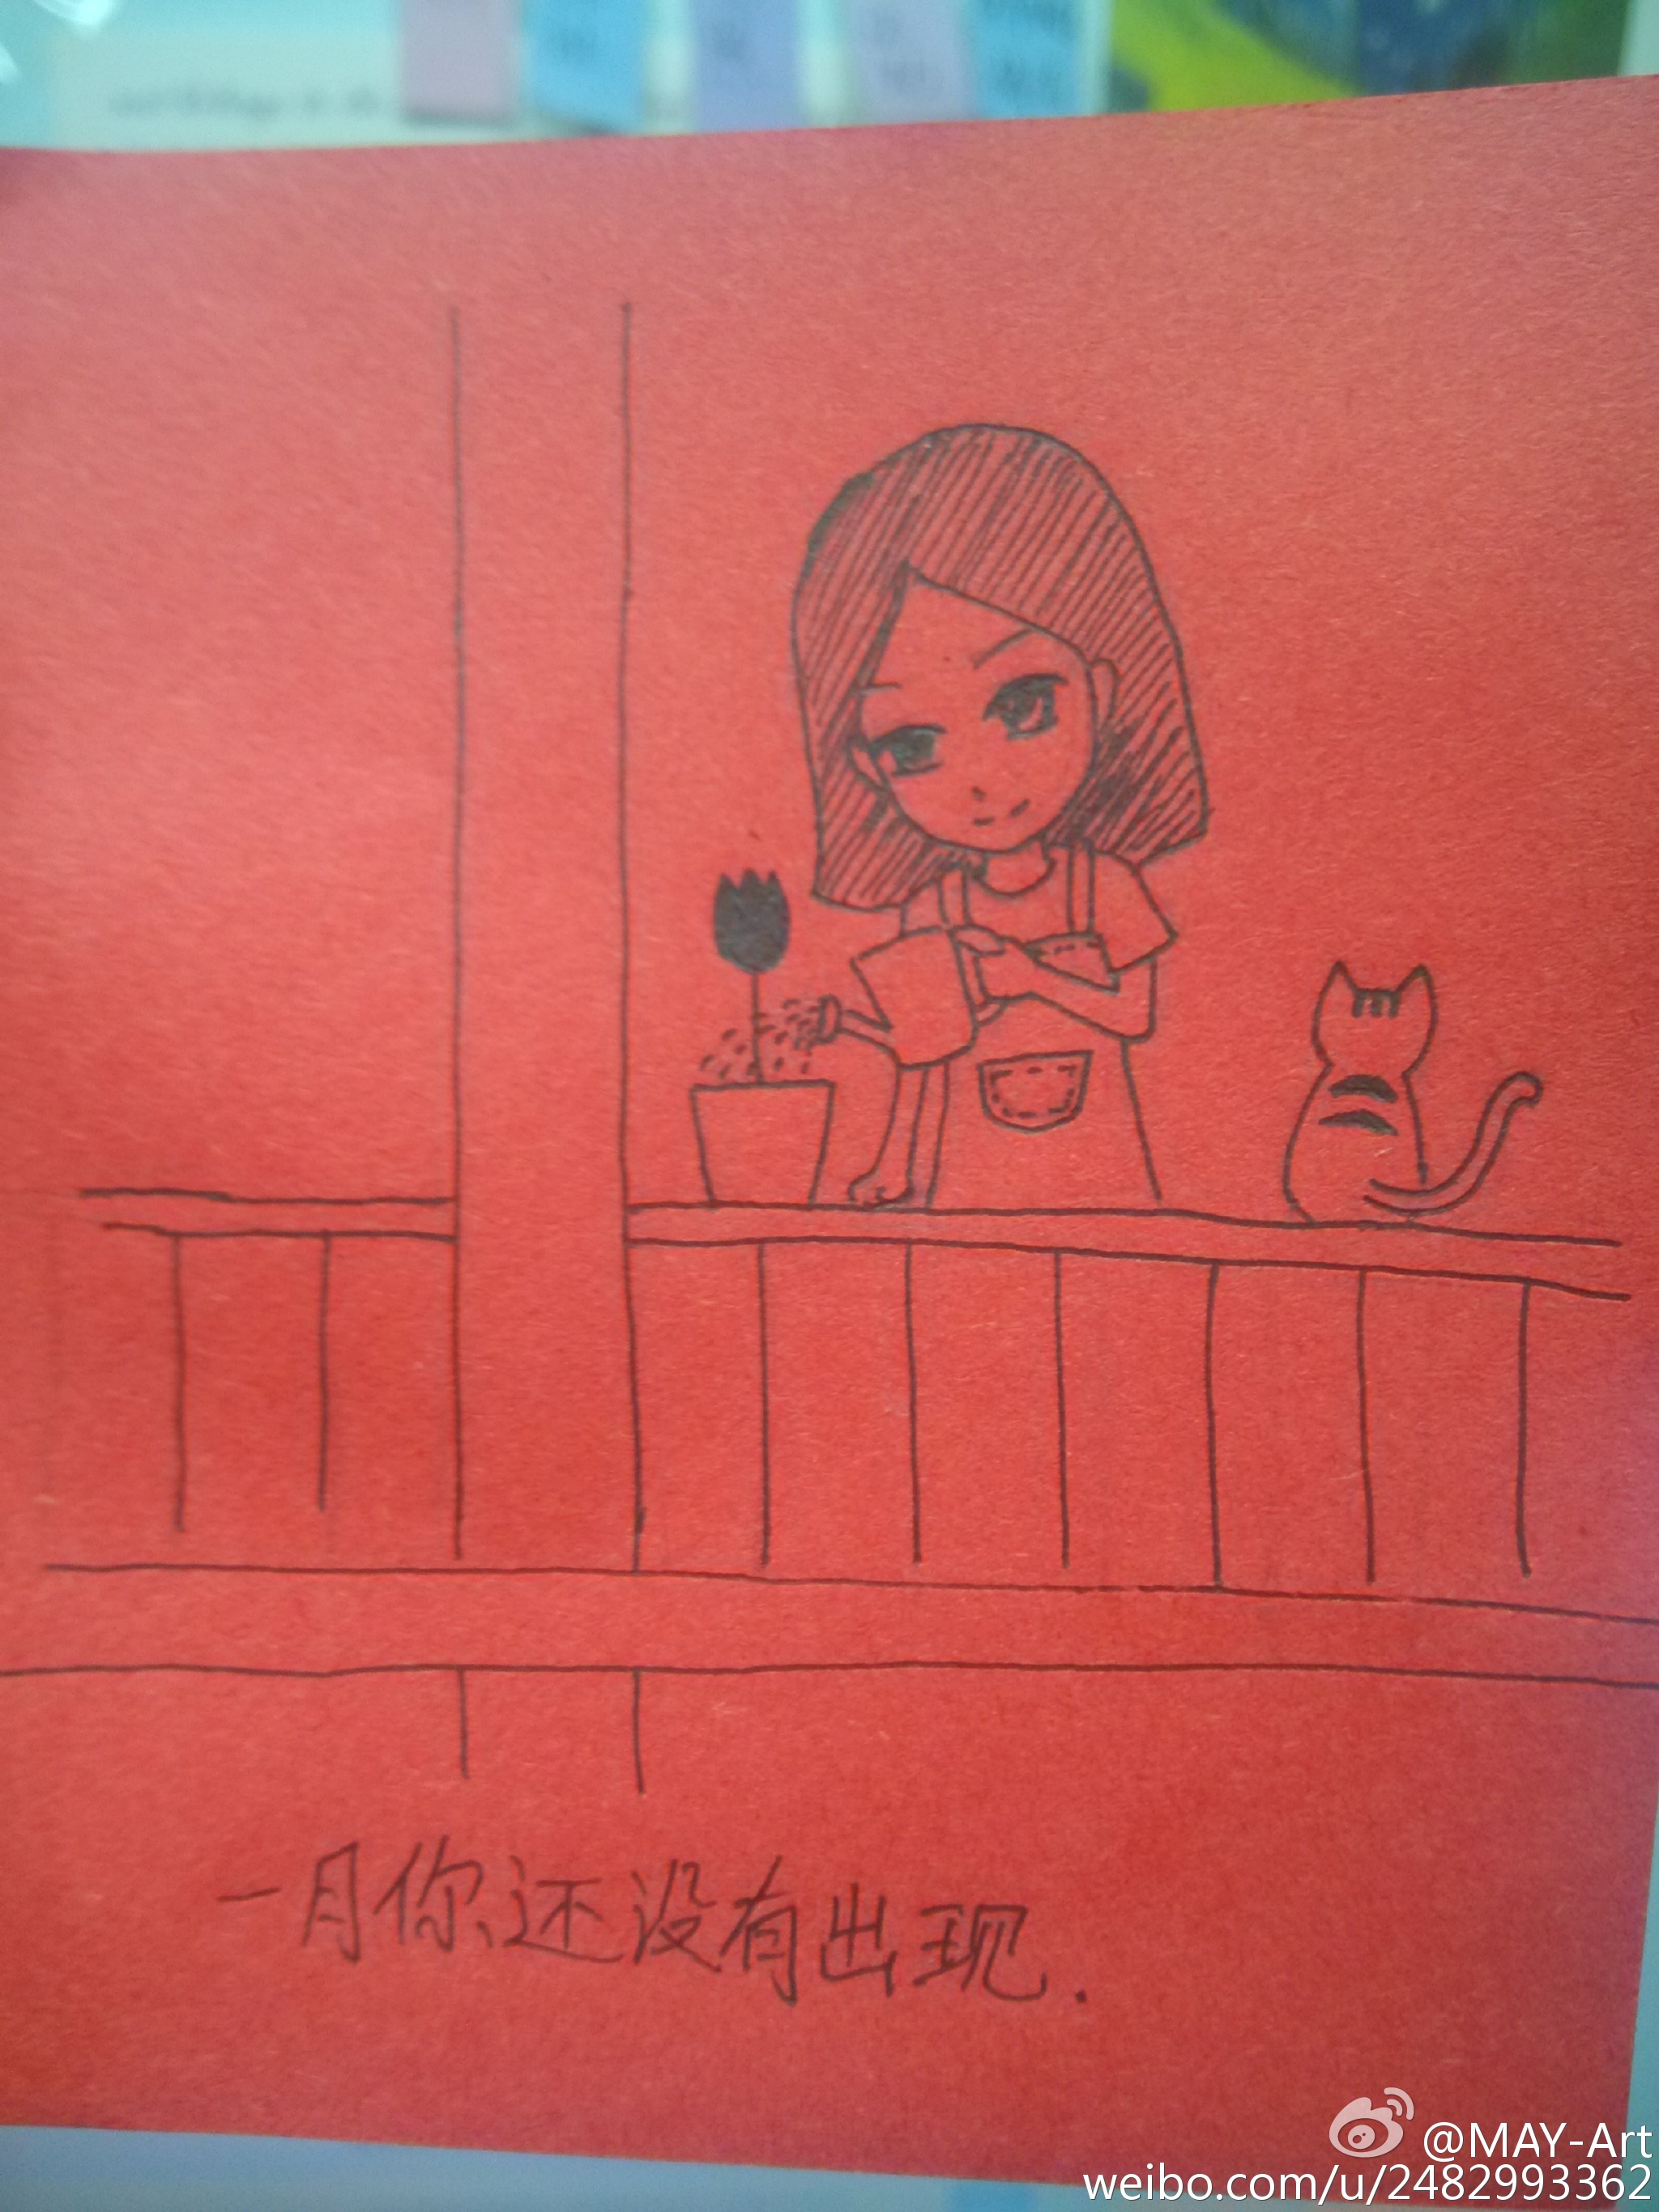 一月你还没有出现.
@MAY-Art
weibo.com/u/2482993362